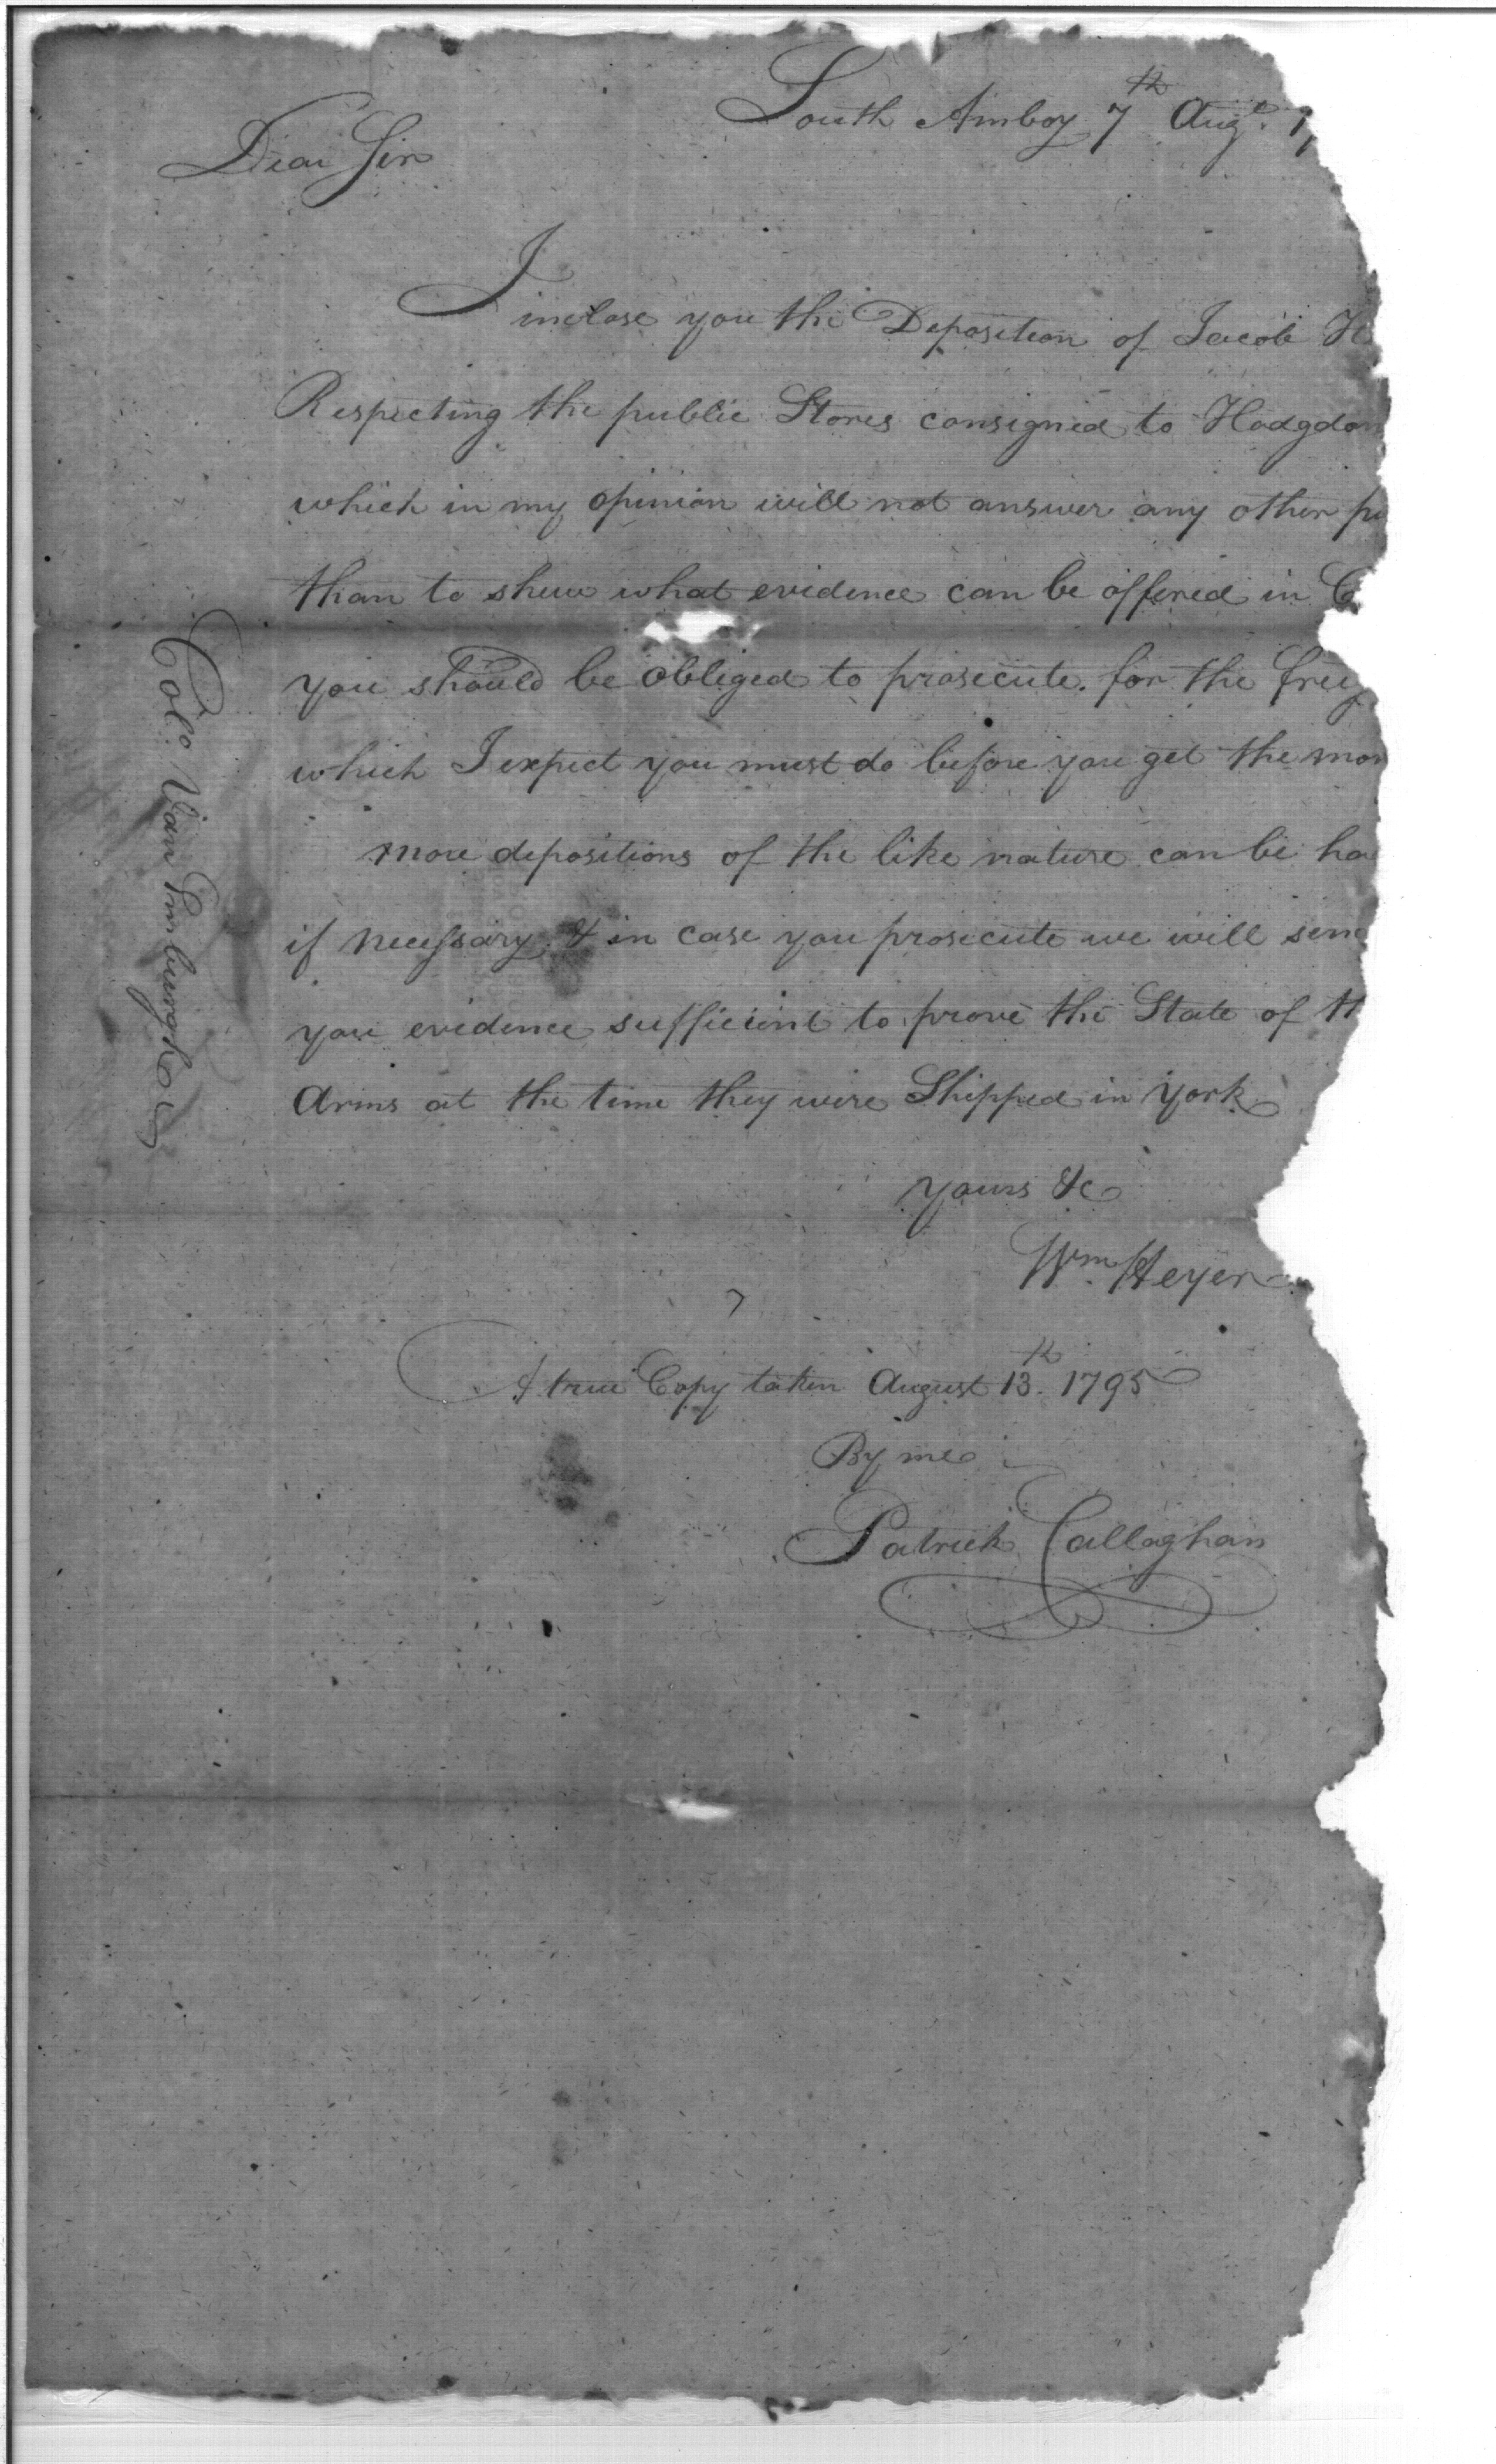 South Amboy 7th Augt. 1
Dear Sir
I
inclose you the Deposition of Jacob H
Respecting the public Stores consigned to Hodgdon
which in my opinion will not answer any other p
than to shew what evidence can be offered in C
you should be obliged to prosecute. for the freig
which I expect you must do before you get the mon
more depositions of the like nature can be ha
if necessary, & in case you prosecute we will sen
you evidence sufficient to prove the State of th
Arms at the time they were Shipped in york
yours &c
Wm. Heyer
A true Copy taken August 13th. 1795
By me
Patrick Callaghan
Colo. Van Emburgh